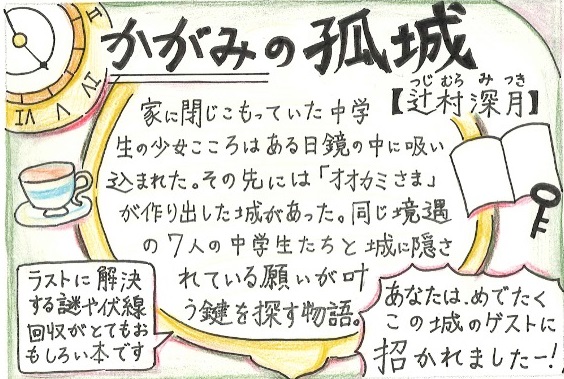 かがみの孤城
つじ むら み つき
【辻村深月】
家に閉じこもっていた中学
生の少女こころはある日鏡の中に吸い
込まれた。その先には「オオカミさま」
が作り出した城があった。同じ境遇
の7人の中学生たちと城に隠さ
れている願いが叶
う鍵を探す物語。
ラストに解決
する謎や伏線
回収がとてもお
もしろい本です
あなたは、めでたく
この城のゲストに
招かれましたー!
VI
V
IV